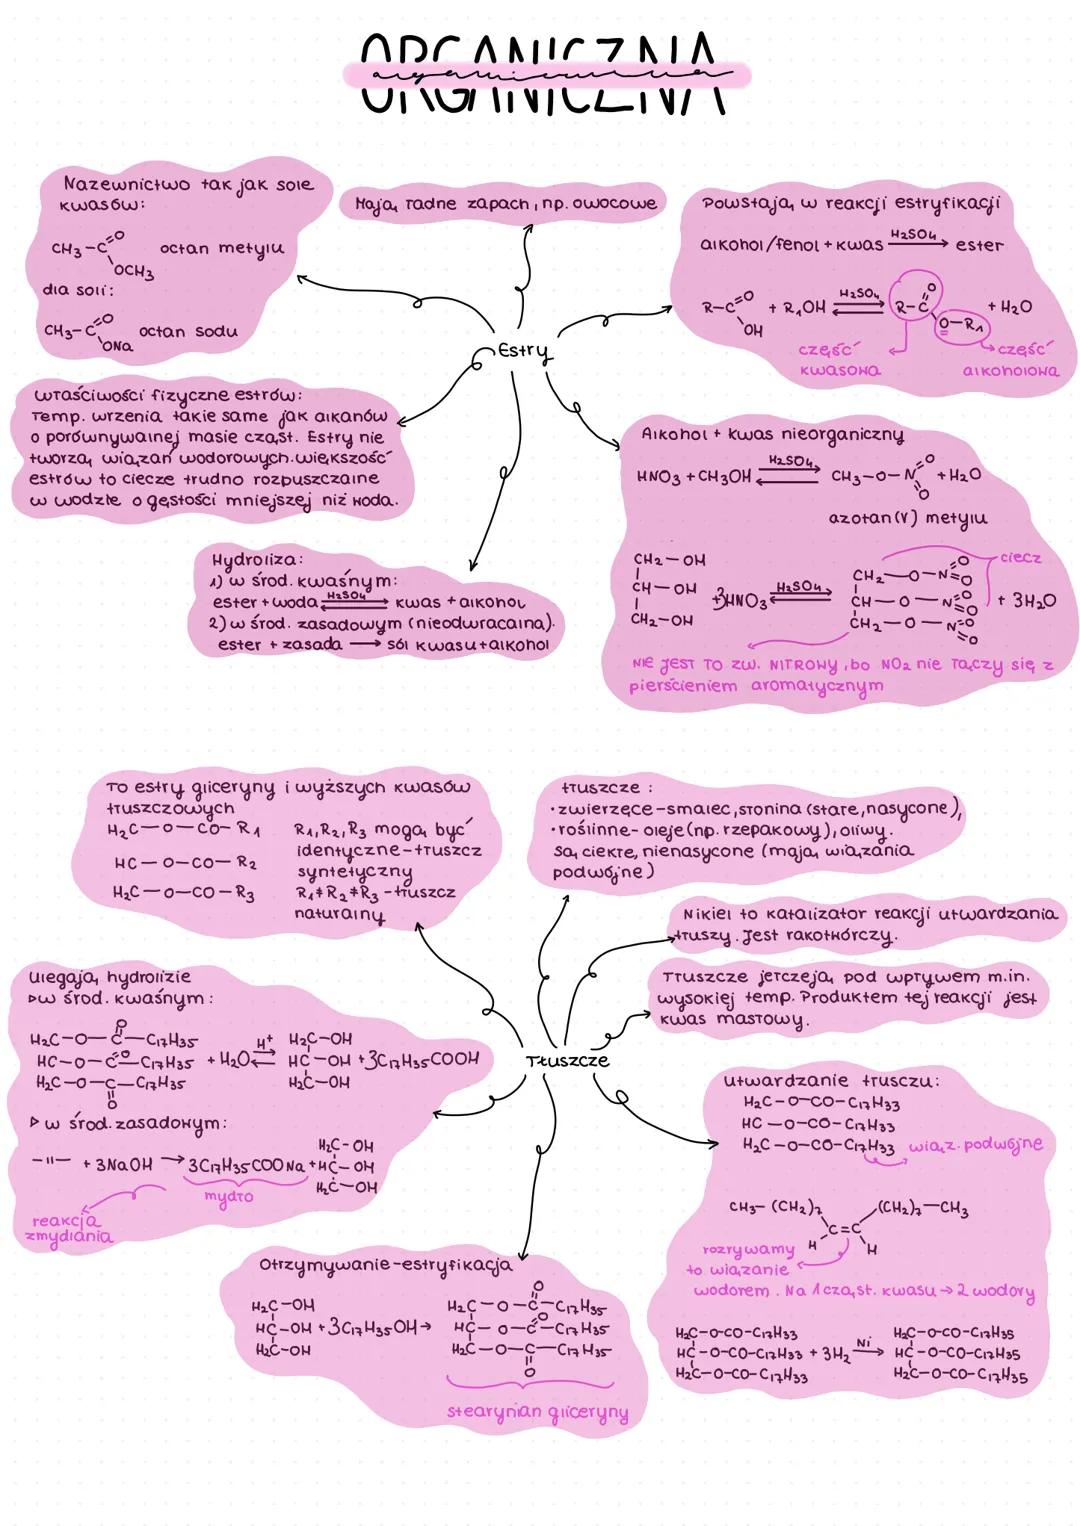 ORGANICZNA
organiczna
Nazewnictwo tak jak sole
kwasów:
CH3-C=O
OCH3
octan metylu
dla soli:
CH3-C=O
ONa
octan sodu
Mają ładne zapach, np. owocowe
Powstają w reakcji estryfikacji
alkohol/fenol + kwas H2SO4 → ester
R-C=O
OH
+ R1OH H2SO4 ⇄ R-C=O
O-R1
+ H2O
część
kwasowa
część
alkoholowa
Estry
właściwości fizyczne estrów:
Temp. wrzenia takie same jak alkanów
o porównywalnej masie cząst. Estry nie
tworzą wiązań wodorowych. większość
estrów to ciecze trudno rozpuszczalne
w wodzie o gęstości mniejszej niż woda.
Alkohol + kwas nieorganiczny
HNO3 + CH3OH H2SO4 ⇄ CH3-O-N=O
=O
+ H2O
azotan(V) metylu
ciecz
CH2-OH
CH-OH
CH2-OH
+ 3HNO3 H2SO4 ⇄
CH2-O-N=O
=O
CH-O-N=O
=O
CH2-O-N=O
=O
+ 3H2O
NIE JEST TO ZW. NITROWY, bo NO2 nie łączy się z
pierścieniem aromatycznym
Hydroliza:
1) w środ. kwaśnym:
ester + woda H2SO4 ⇄ kwas + alkohol
2) w środ. zasadowym (nieodwracalna).
ester + zasada → sól kwasu + alkohol
To estry gliceryny i wyższych kwasów
tłuszczowych
H2C-O-CO-R1
HC-O-CO-R2
H2C-O-CO-R3
R1,R2,R3 mogą być
identyczne-tłuszcz
syntetyczny
R1≠R2≠R3-tłuszcz
naturalny
tłuszcze:
·zwierzęce-smalec, słonina (stałe, nasycone),
·roślinne-oleje(np. rzepakowy), oliwy.
są ciekłe, nienasycone (mają wiązania
podwójne)
Nikiel to katalizator reakcji utwardzania
tłuszy. Jest rakotwórczy.
Tłuszcze jełczeją pod wpływem m.in.
wysokiej temp. Produktem tej reakcji jest
kwas masłowy.
Tłuszcze
Ulegają hydrolizie
▷w środ. kwaśnym:
H2C-O-C-C17H35
O
HC-O-C=O-C17H35
H2C-O-C-C17H35
O
+ H2O H+ ⇄
H2C-OH
HC-OH
H2C-OH
+3C17H35COOH
▷ w środ. zasadowym:
-"- + 3NaOH → 3C17H35COONa +
H2C-OH
HC-OH
H2C-OH
mydło
reakcja
zmydlania
utwardzanie tłusczu:
H2C-O-CO-C17H33
HC-O-CO-C17H33
H2C-O-CO-C17H33
wiąz. podwójne
CH3-(CH2)7
(CH2)7-CH3
C=C
H
H
rozrywamy
to wiązanie
wodorem. Na 1 cząst. kwasu → 2 wodory
H2C-O-CO-C17H33
HC-O-CO-C17H33
H2C-O-CO-C17H33
+ 3H2 Ni →
H2C-O-CO-C17H35
HC-O-CO-C17H35
H2C-O-CO-C17H35
Otrzymywanie-estryfikacja
H2C-OH
HC-OH
H2C-OH
+3C17H35OH→
H2C-O-C-C17H35
O
HC-O-C=O-C17H35
H2C-O-C-C17H35
O
stearynian gliceryny